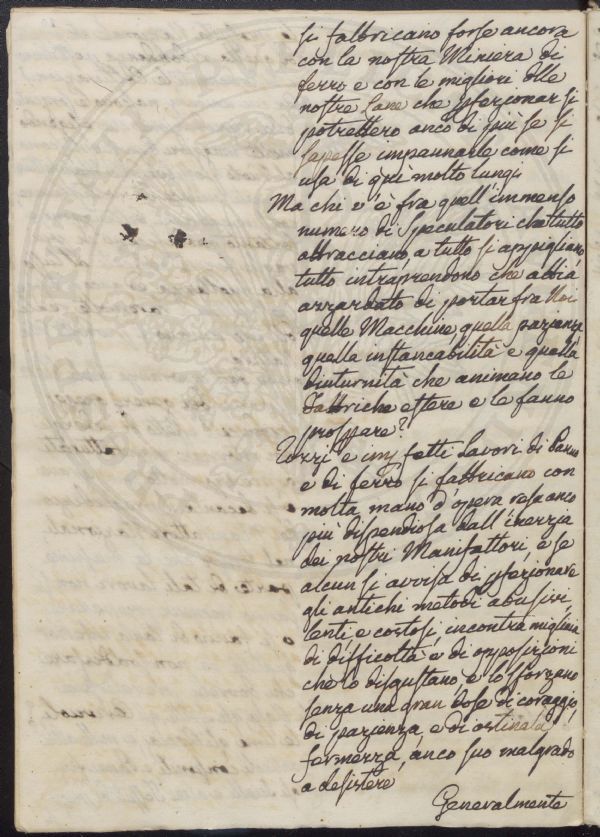 si fabbricano forse ancora
con la nostra Miniera di
ferro e con le migliori delle
nostre Lane che pfezionar si
potrebbero anco di più se si
sapesse impannarle come si
usa di quì molto lungi
Ma chi v'è fra quell'immenso
numero di Speculatori che tutto
abbracciano a tutto si appigliano
tutto intraprendono che abbia
azzardato di portar fra Noi
quelle Macchine quella pazienza
quella instancabilità e quella
diuturnità che animano le
Fabbriche estere e le fanno
prosperare?
Rozzi e impfetti Lavori di Panno
e di ferro si fabbricano con
molta mano d'opera resa anco
più dispendiosa dall'inerzia
dei nostri Manifattori, e se
alcun si avvisa di pfezionare
gli antichi metodi abusivi
lenti e costosi, incontra migliaia
di difficoltà e di opposizioni
che lo disgustano, e lo sforzano
senza una gran dose di coraggio
di pazienza, e di ostinata
fermezza, anco suo malgrado
a desistere
Generalmente